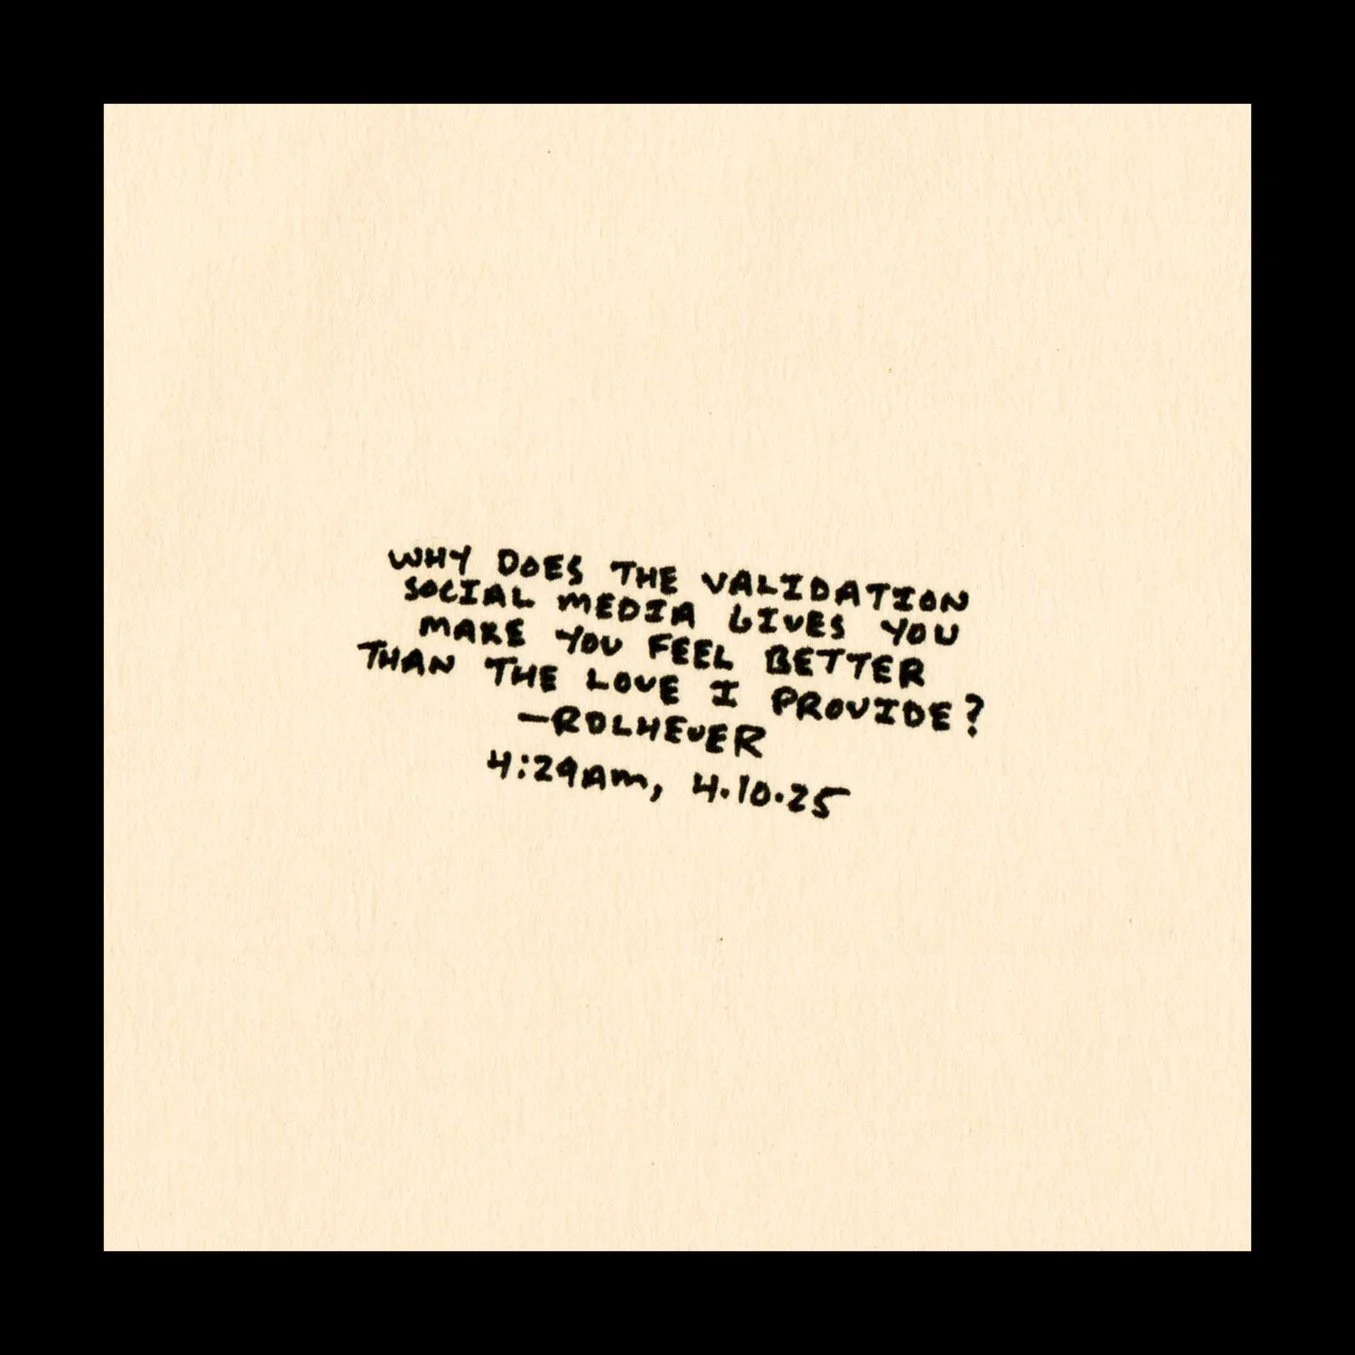 WHY DOES THE VALIDATION
SOCIAL MEDIA GIVES YOU
MAKE YOU FEEL BETTER
THAN THE LOVE I PROVIDE?
—ROLHEUER
4:29AM, 4.10.25